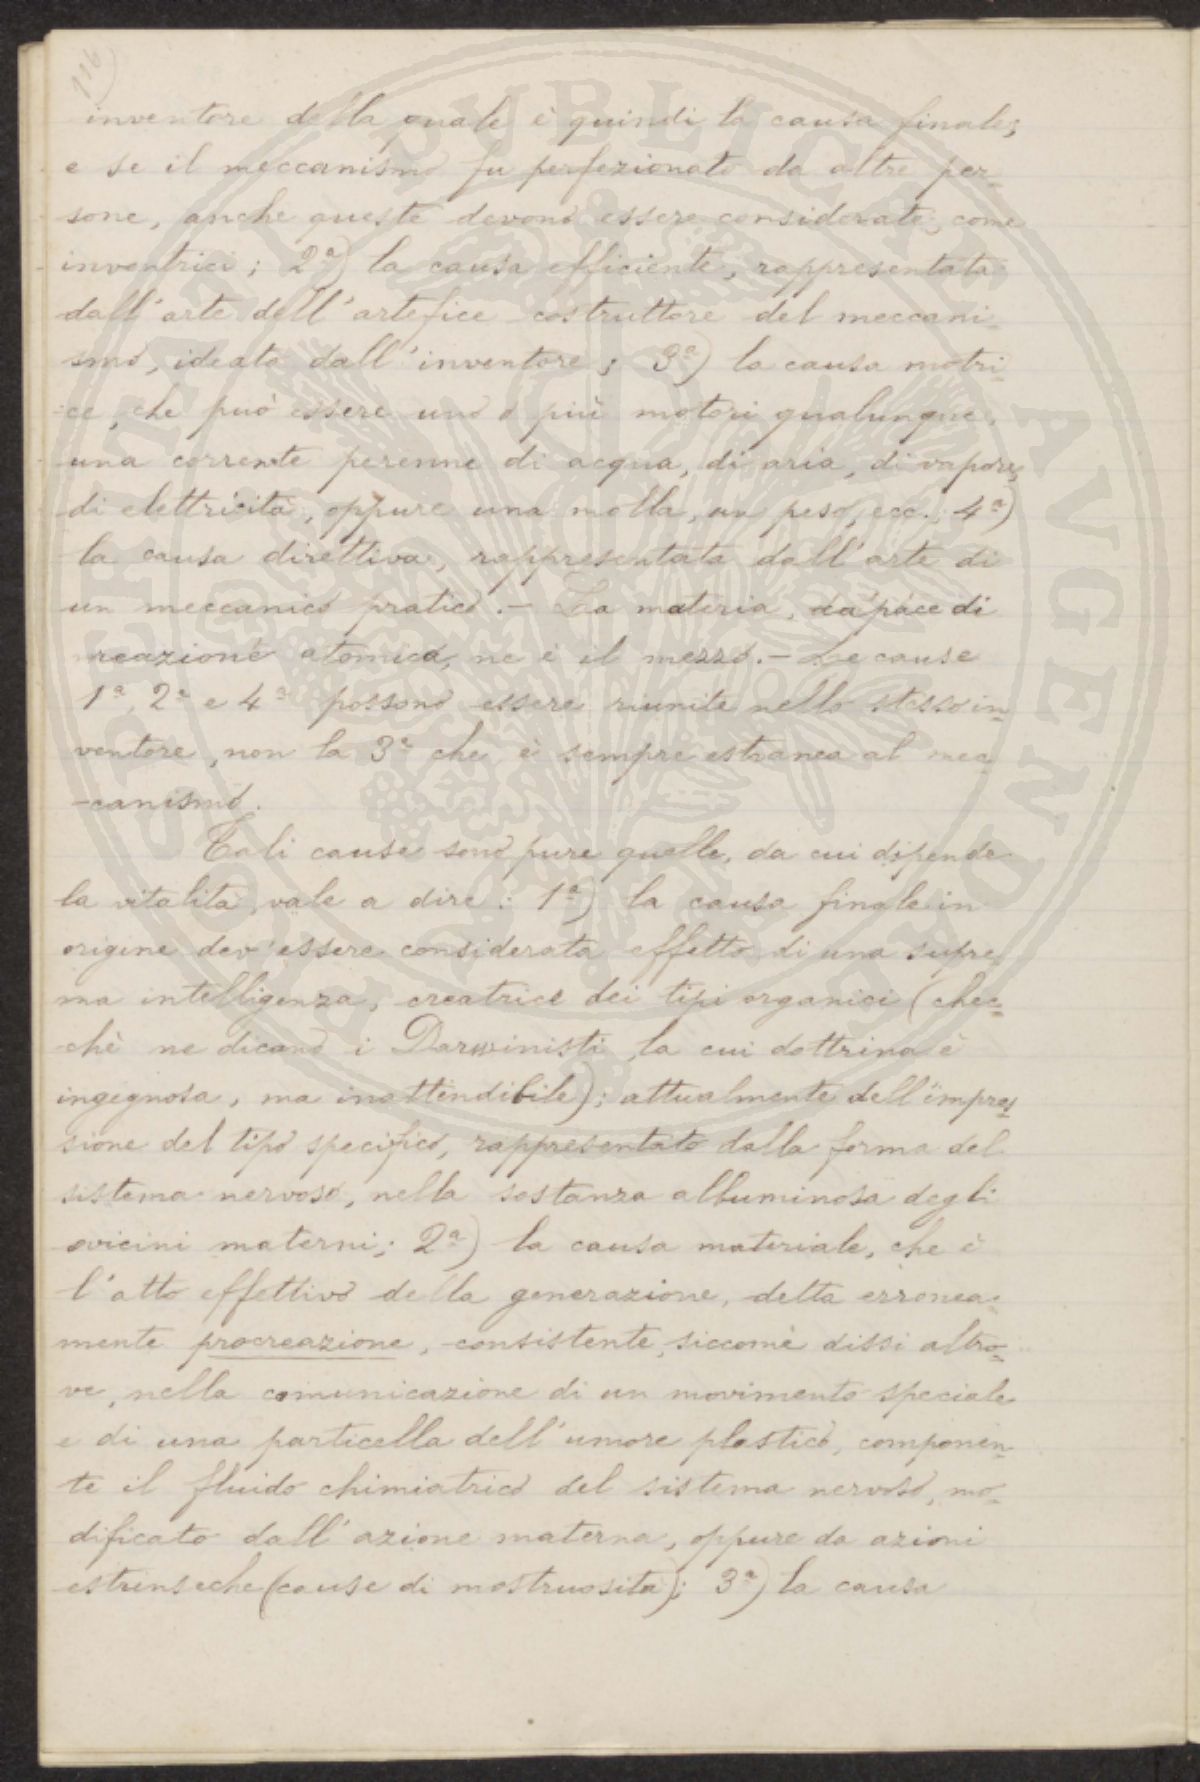 116
inventore della quale è quindi la causa finale;
e se il meccanismo fu perfezionato da altre per-
sone, anche queste devono essere considerate come
inventrici; 2ª) la causa efficiente, rappresentata
dall'arte dell'artefice costruttore del meccani-
smo, ideato dall'inventore; 3ª) la causa motri-
ce, che può essere uno o più motori qualunque,
una corrente perenne di acqua, di aria, di vapore,
di elettricità, oppure una molla, un peso, ecc.; 4ª)
la causa direttiva, rappresentata dall'arte di
un meccanico pratico. — La materia, capace di
reazione atomica, ne è il mezzo. — Le cause
1ª, 2ª e 4ª possono essere riunite nello stesso in-
ventore, non la 3ª che è sempre estranea al mec-
-canismo.
Tali cause sono pure quelle, da cui dipende
la vitalità, vale a dire: 1ª) la causa finale in
origine dev'essere considerata effetto di una supre-
ma intelligenza, creatrice dei tipi organici (chec-
-chè ne dicano i Darwinisti, la cui dottrina è
ingegnosa, ma inattendibile); attualmente dell'impres-
sione del tipo specifico, rappresentato dalla forma del
sistema nervoso, nella sostanza albuminosa degli
ovicini materni; 2ª) la causa materiale, che è
l'atto effettivo della generazione, detta erronea-
mente procreazione, consistente, siccome dissi altro-
ve, nella comunicazione di un movimento speciale
e di una particella dell'umore plastico, componen-
te il fluido chimiatrico del sistema nervoso, mo-
dificato dall'azione materna, oppure da azioni
estrinseche (cause di mostruosità); 3ª) la causa